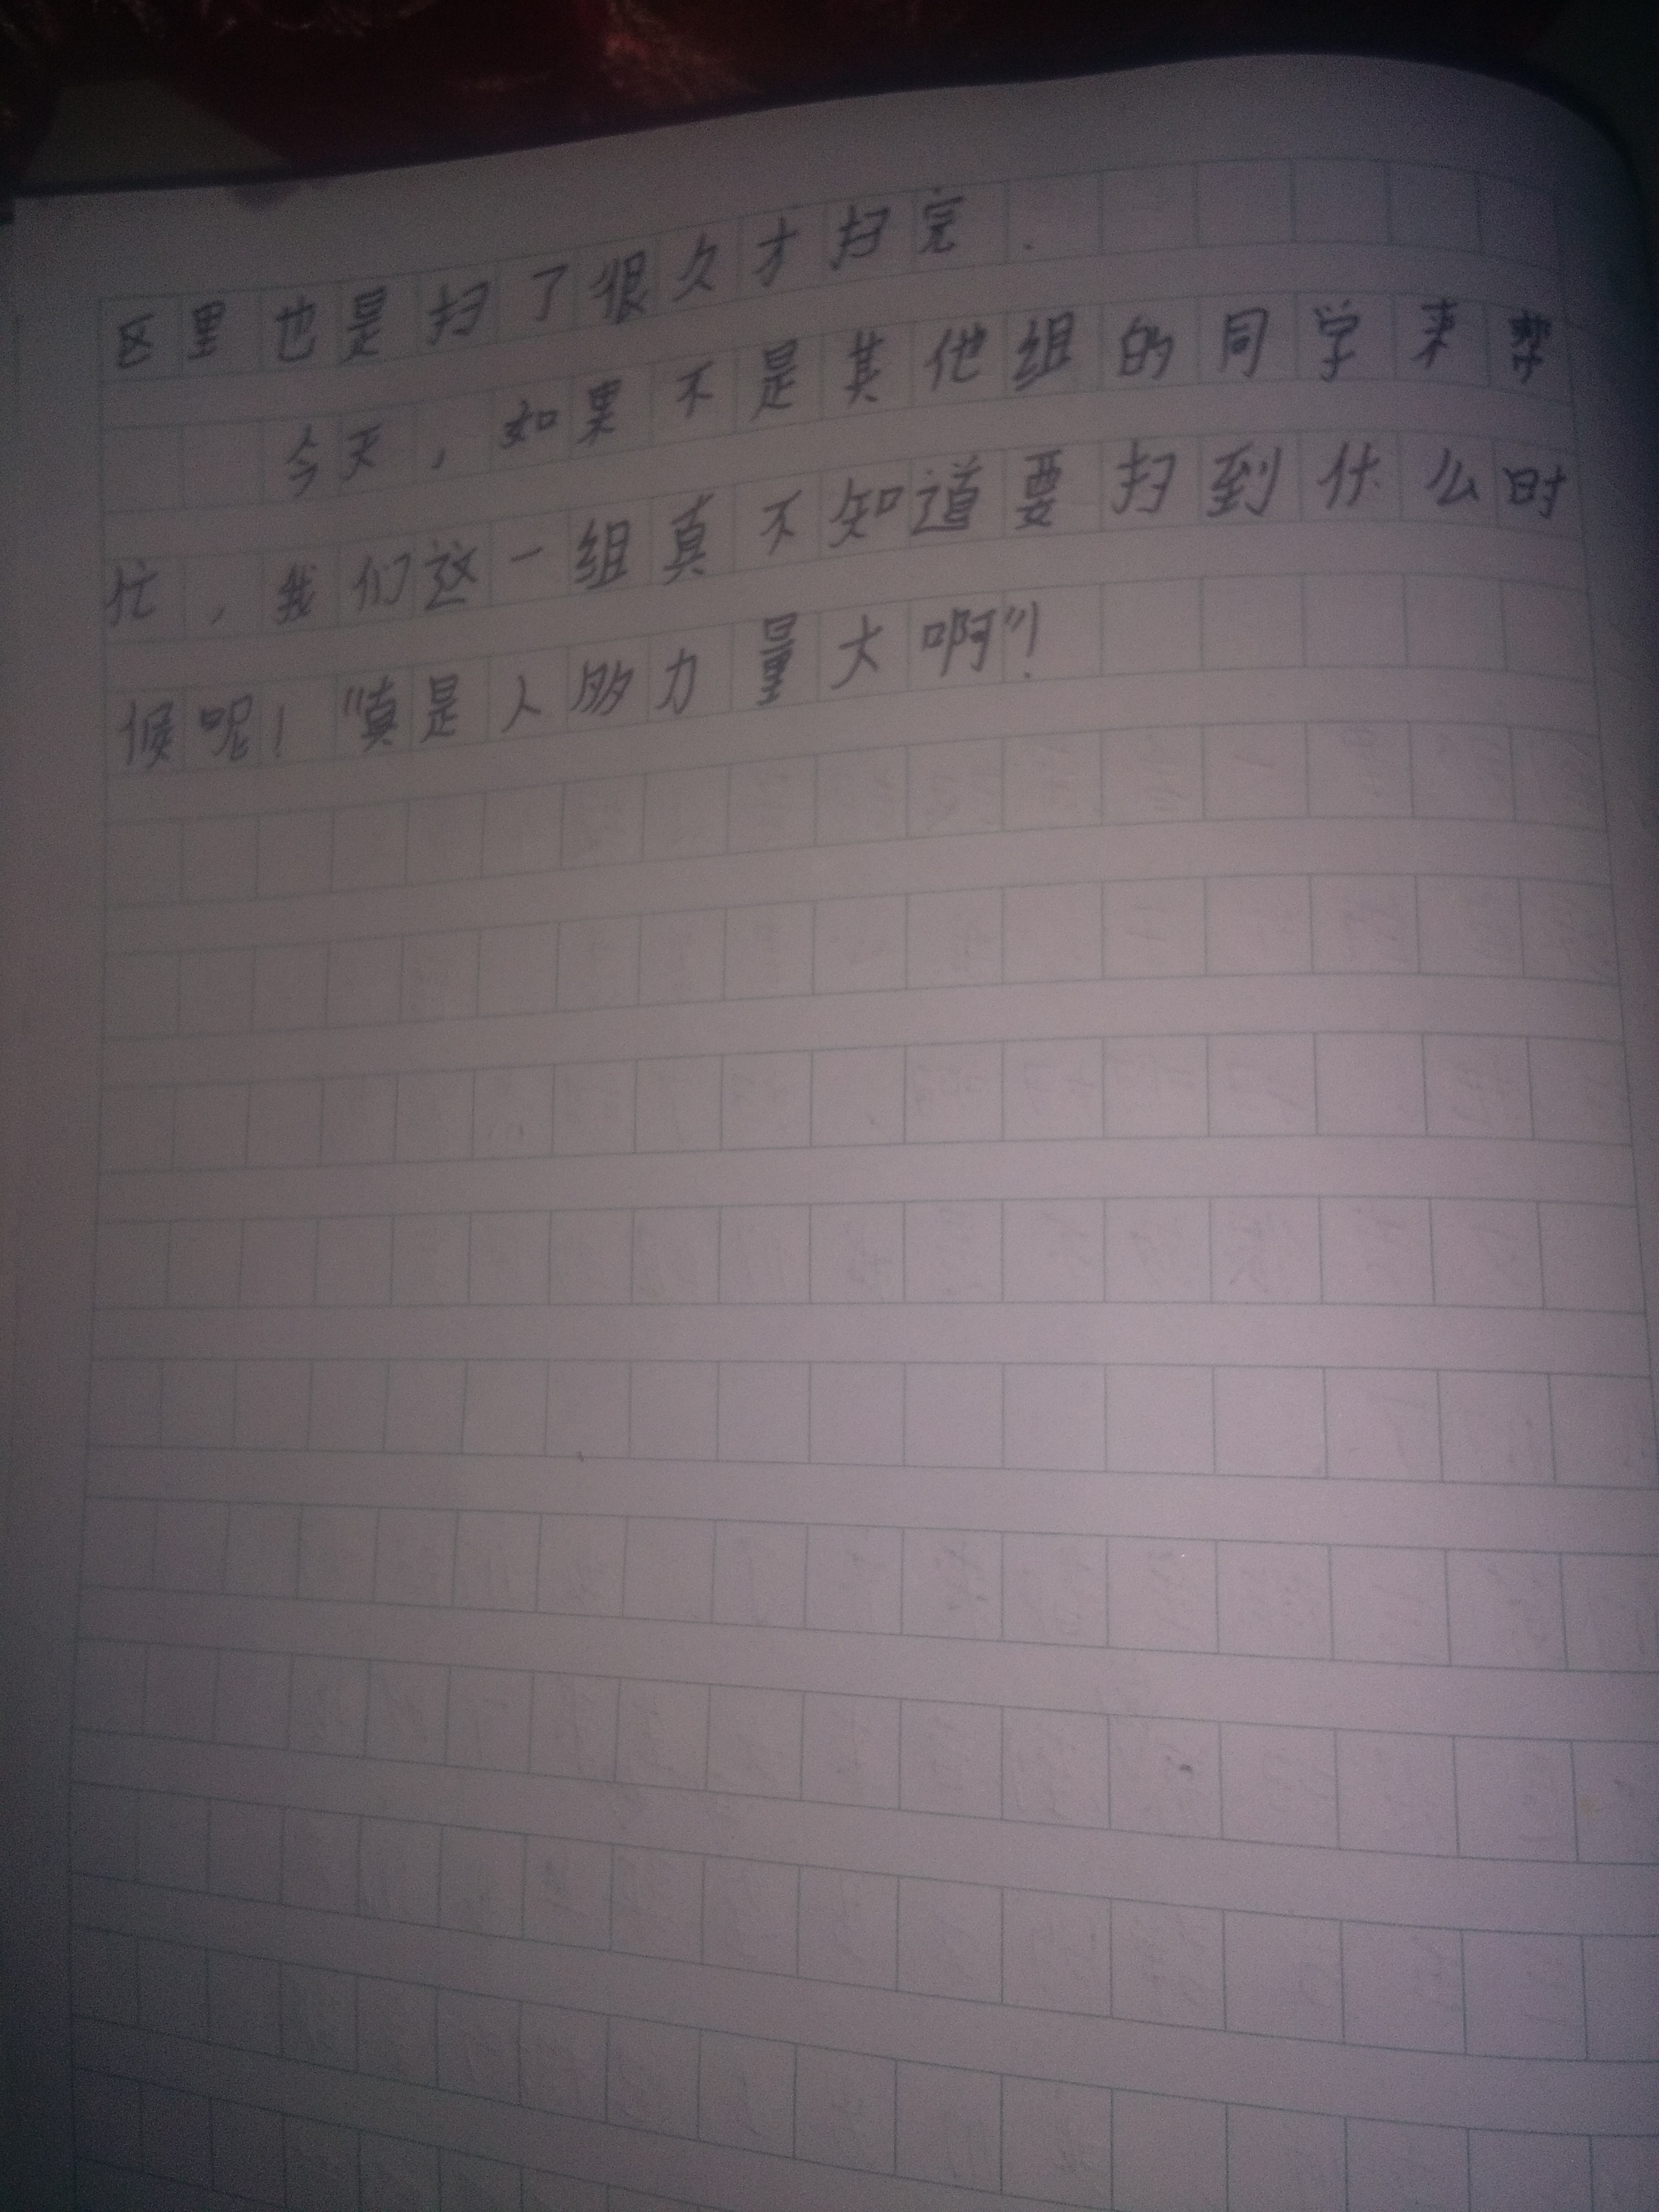 区里也是扫了很久才扫完.
今天，如果不是其他组的同学来帮
忙，我们这一组真不知道要扫到什么时
候呢！“真是人多力量大啊”！